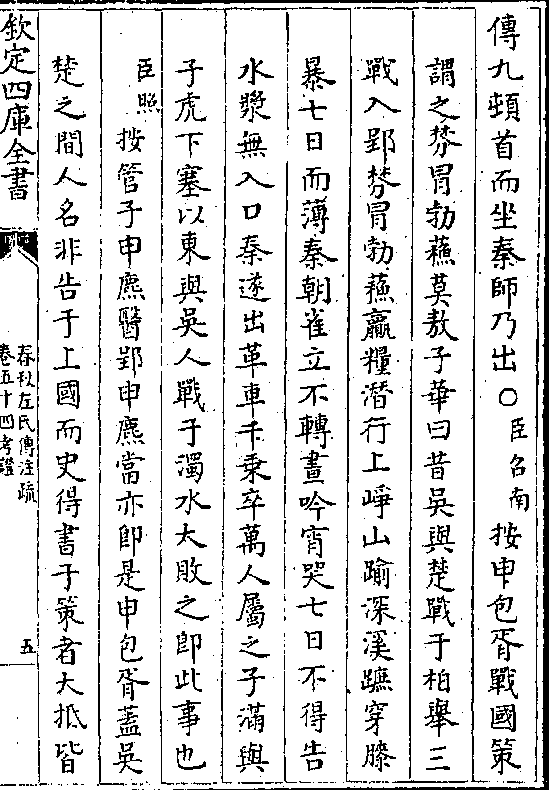 傳九頓首而坐秦師乃出○臣召南按申包胥戰國策
謂之棼冒勃蘓莫敖子華曰昔吳與楚戰于柏舉三
戰入郢棼冒勃蘓贏糧潛行上崢山踰深溪蹠穿膝
暴七日而薄秦朝雀立不轉晝吟宵哭七日不得告
水漿無入口秦遂出革車千乗卒萬人屬之子滿與
子虎下塞以東與吳人戰于濁水大敗之即此事也
臣照按管子申麃醫郢申麃當亦即是申包胥蓋吳
楚之間人名非告于上國而史得書于策者大抵皆
欽定四庫全書
春秋左氏傳注疏
卷五十四考證
五